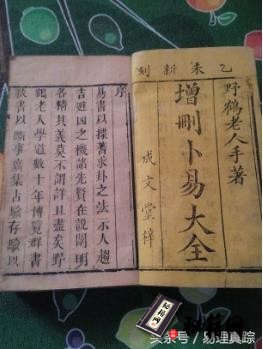 乙未新刻
野鶴老人手著
增刪卜易大全
成文堂梓
序
易書以揲蓍求卦之法示人趨
吉避凶之機諸先賢在說闡明
各精其義莫不詳且盡矣野
鶴老人學道數十年博覽群書
書以斷事廣集占驗存驗以
头条号/易理真踪